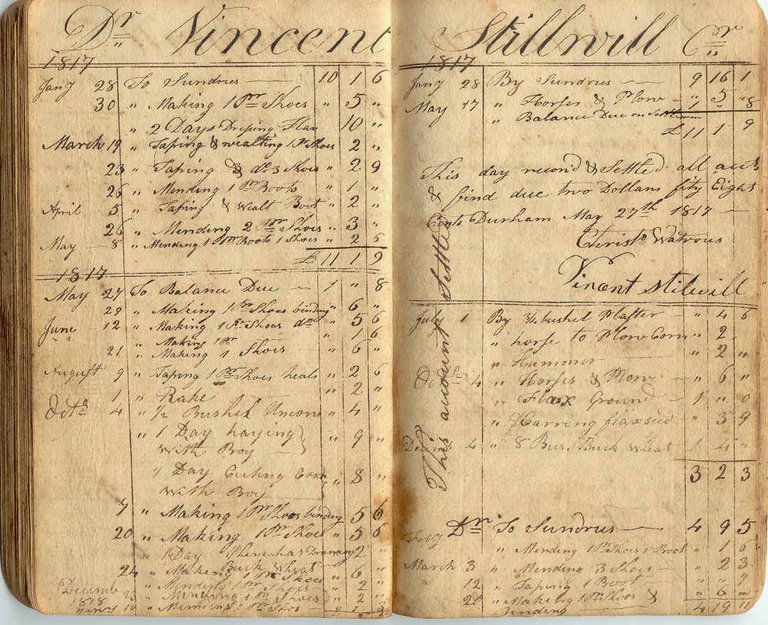 Dr Vincent
1817
Jany 28 To Sundries 10 1 6
30 " Making 1 Pr Shoes " 5 "
" 2 Days Dresing Flax 10 "
March 19 " Taping & 1 Pr Shoes " 2 "
23 " Taping & do 3 Shoes " 2 9
26 " Mending 1 Pr Boots " 1 "
April 5 " Taping & Wealt Boot " 2 "
26 " Mending 2 Pr Shoes " 3 "
May 8 " Mending 1 Pr Boots 1 Shoes " 2 6
£ 11 1 9
1817
May 27 To Balance Due 1 " 8
29 " Making 1 Pr Shoes binding " 6
June 12 " Making 1 Pr Shoes do " 5 6
" Making 1 Pr " 1 6
21 " Making 1 Shoes " 6 "
August 9 " Taping 1 Pr Shoes heals " 2 6
1 " Rake " 2 "
Octr 4 " 1/2 Bushel " 4 "
" 1 Day haying
with Boy " 9 "
" 1 Day Cuting Corn
with Boy " 8 "
7 " Making 1 Pr Shoes binding 5 6
20 " Making 1 Pr Shoes " 5 6
" 1 Day 2 "
24 " Making 1 Pr Shoes " 6 "
Decemb " Mending 1 Pr Shoes " 2
1818 " Mending 1 Pr Shoes " 2
10 " Mending 1 Pr Shoe
Stillwill Cr
1817
Jany 28 By Sundries 9 16 1
May 17 " Horses & Plow " 5 "
" Balance Due on Settlem 1 " 8
£ 11 1 9
This day recond & Settled all accts
& find due two Dollars fifty Eight
Cents Durham May 27th 1817
Christr Watrous
Vincent Stilwill
This account Settled
July 1 By 3/4 bushel Plaster " 4 6
" horse to Plow Corn " 2 "
" Hammer " 2 "
Octr 4 " Horses & Plow " 6 "
" Flax Ground 1 " 0
" Harring flaxseed " 3 9
Decmr 4 " 8 Bus. Buck Wheat 1 4 "
3 2 3
Dr To Sundries 4 9 5
" Mending 1 Pr Shoes 1 Boot " 1 6
March 3 " Mending 3 Shoes " 2 3
12 " Taping 1 Boot " 9
20 " Making 1 Pr Shoes & " 6 "
Binding 4 19 11